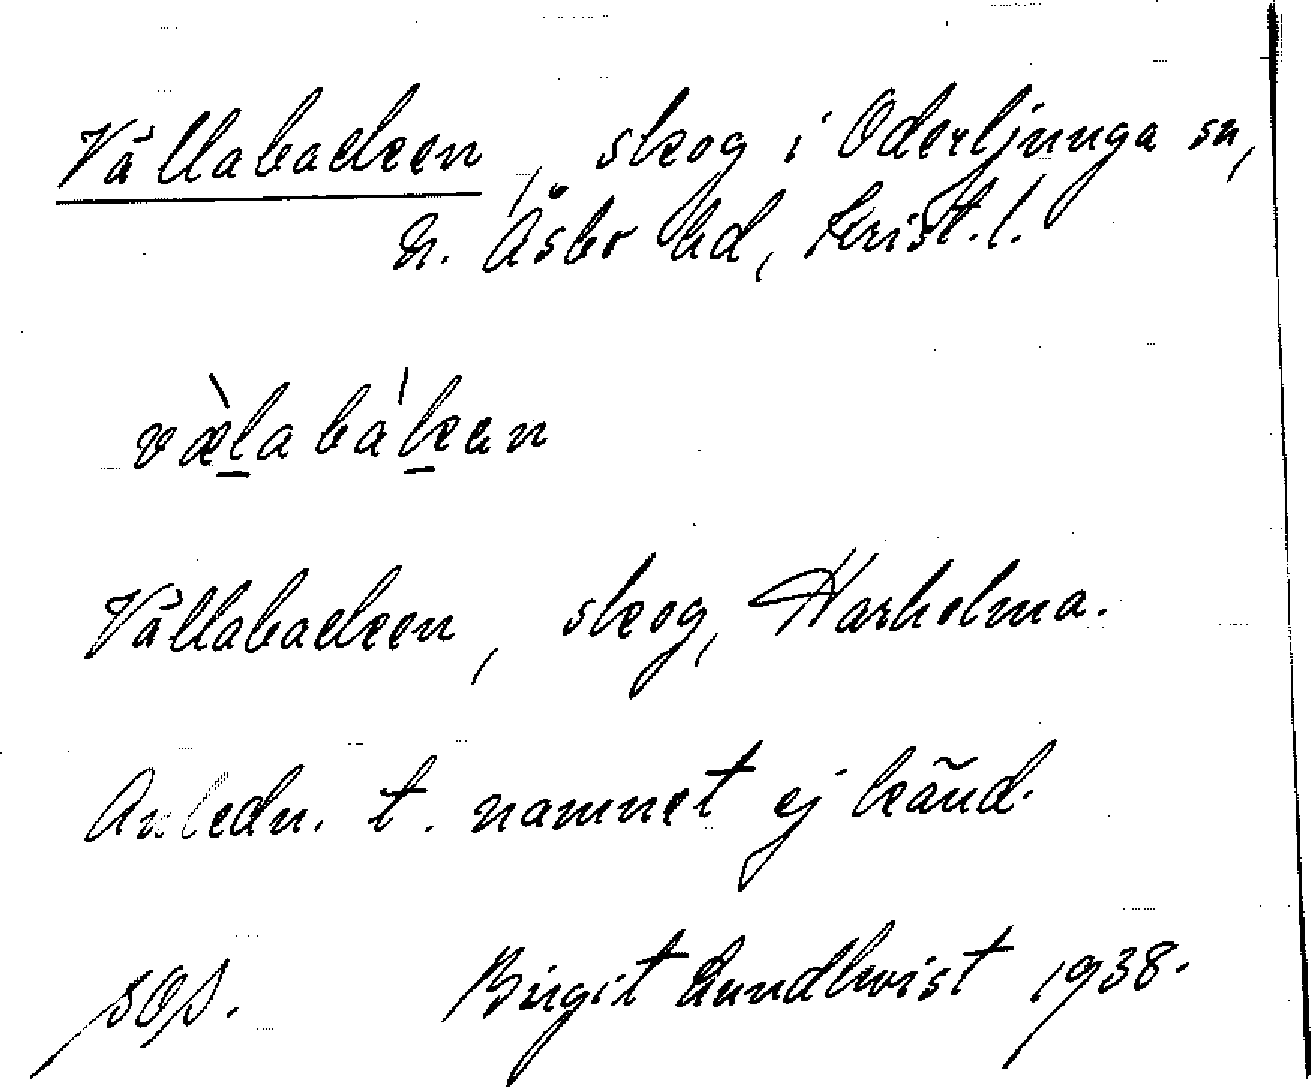 Vållabacken, skog i Oderljunga sn,
N. Åsbo hd, Krist. l.
væ̀labákan
Vållabacken, skog, Harholma.
Anledn. t. namnet ej känd.
Birgit Lundkvist 1938.